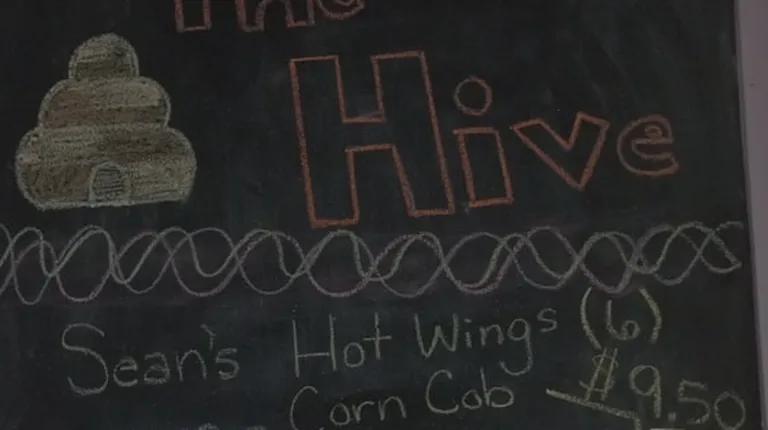 The
Hive
Sean's Hot Wings (6)
Corn Cob $9.50